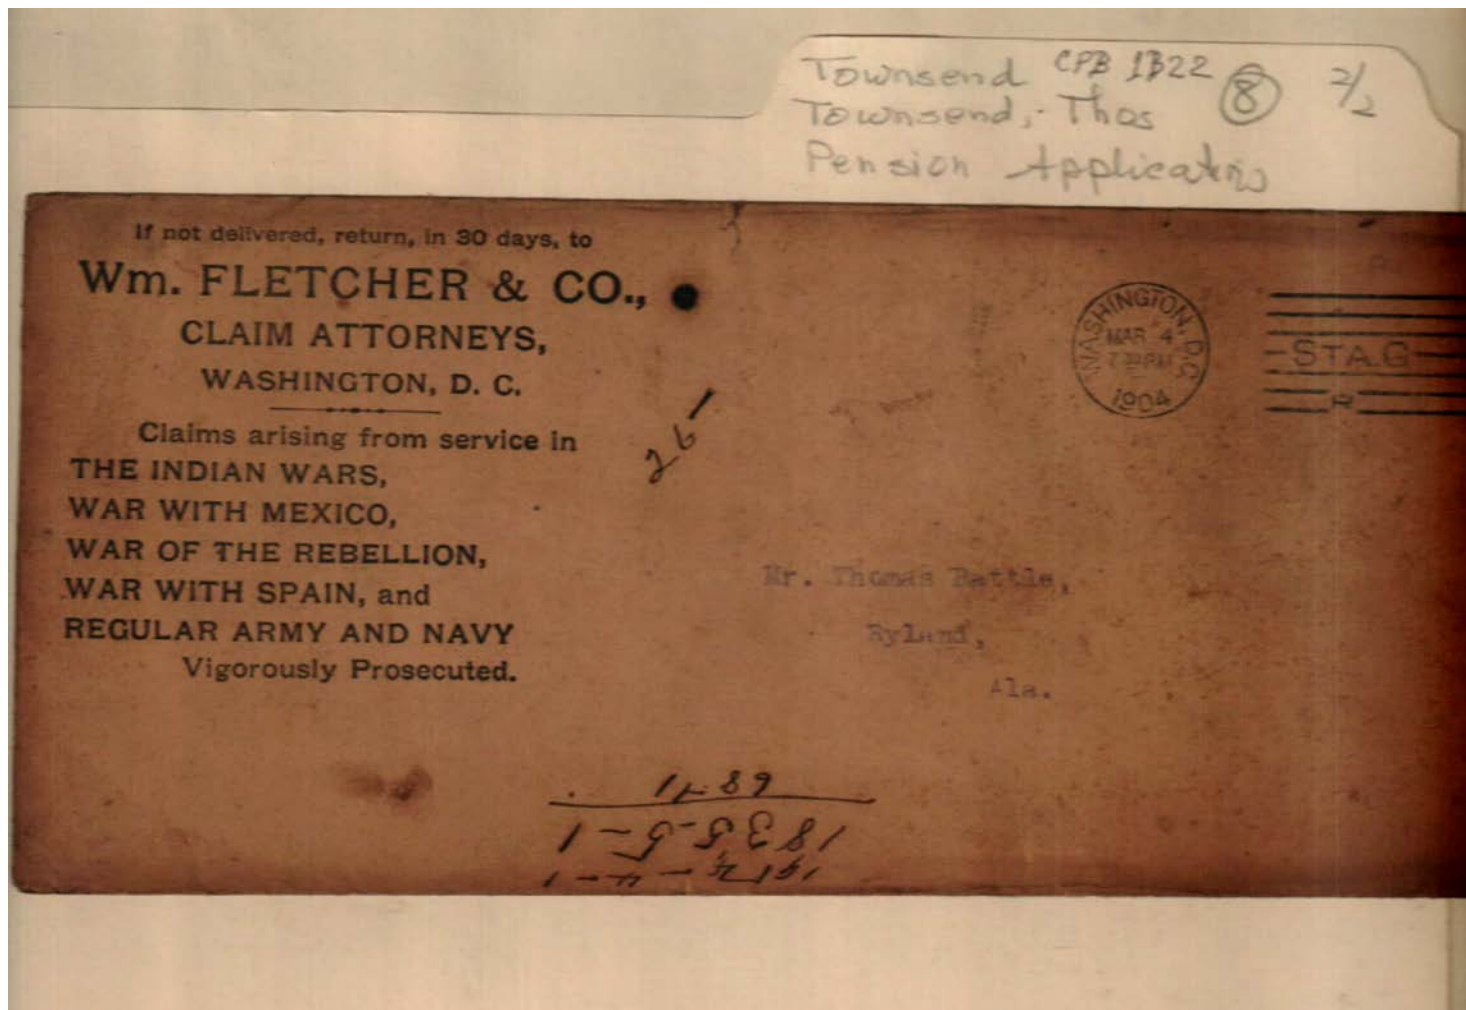 Townsend CPB 1B22 8 2/2
Townsend, Thos
Pension Applications
If not delivered, return, in 30 days, to
Wm. FLETCHER & CO.,
CLAIM ATTORNEYS,
WASHINGTON, D. C.
Claims arising from service in
THE INDIAN WARS,
WAR WITH MEXICO,
WAR OF THE REBELLION,
WAR WITH SPAIN, and
REGULAR ARMY AND NAVY
Vigorously Prosecuted.
WASHINGTON, D.C.
MAR 4
1904
STA.G
Mr. Thomas Battle,
Ryland,
Ala.
1835-5-1